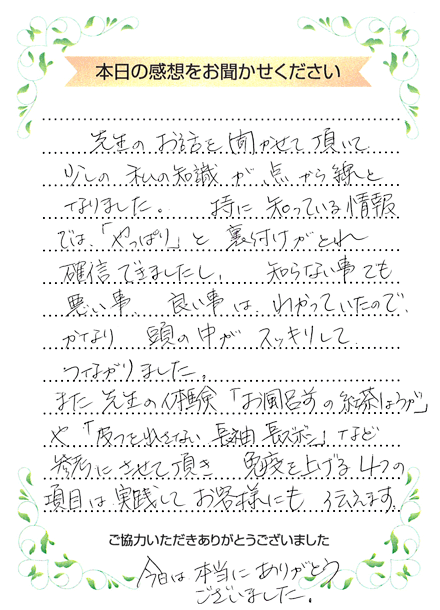 本日の感想をお聞かせください
先生のお話を聞かせて頂いて
少しの私の知識が点から線と
なりました。 特に知っている情報
では、「やっぱり」と裏付けがとれ
確信できましたし、 知らない事でも
悪い事、良い事は、わかっていたので、
かなり 頭の中が スッキリして
つながりました。
また先生の体験「お風呂前の紅茶しょうが」
や「皮フを出さない 長袖 長ズボン」など
参考にさせて頂き 免疫を上げる4つの
項目は実践して お客様にも 伝えます。
ご協力いただきありがとうございました
今日は本当にありがとう
ございました。